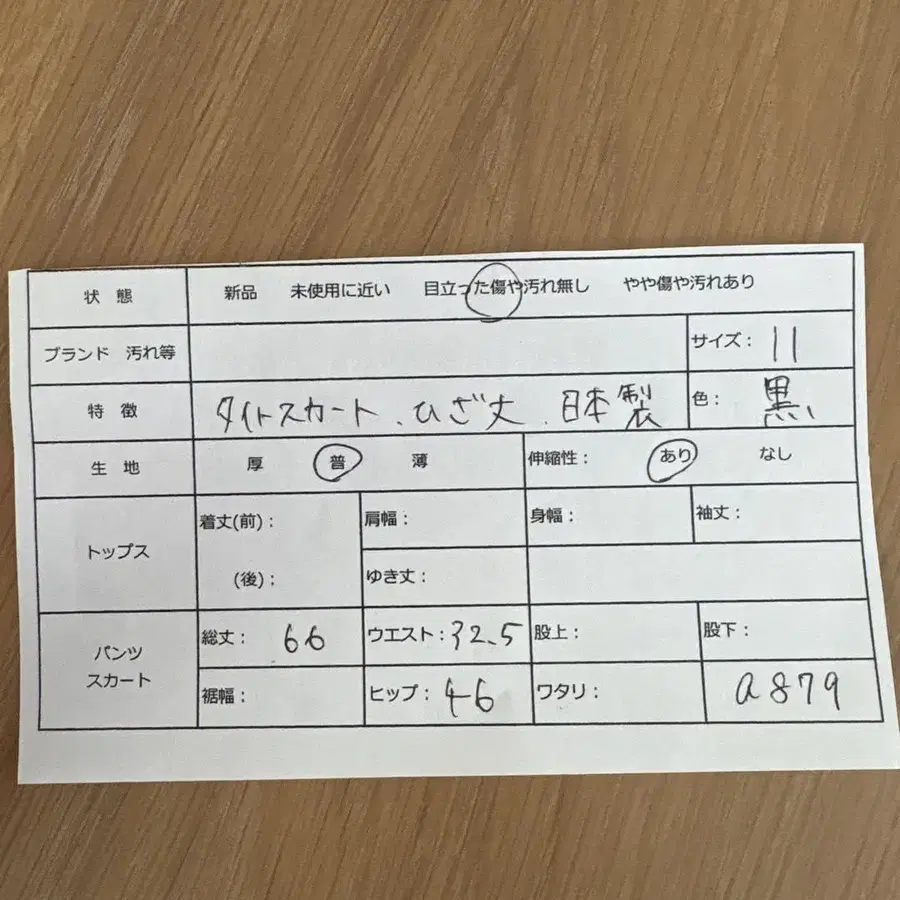 状 態 新品 未使用に近い 目立った傷や汚れ無し やや傷や汚れあり
ブランド 汚れ等 サイズ: 11
特 徴 タイトスカート、ひざ丈、日本製 色: 黒
生 地 厚 普 薄 伸縮性: あり なし
トップス 着丈(前): 肩幅: 身幅: 袖丈:
(後): ゆき丈:
パンツ スカート 総丈: 66 ウエスト: 32.5 股上: 股下:
裾幅: ヒップ: 46 ワタリ: a879